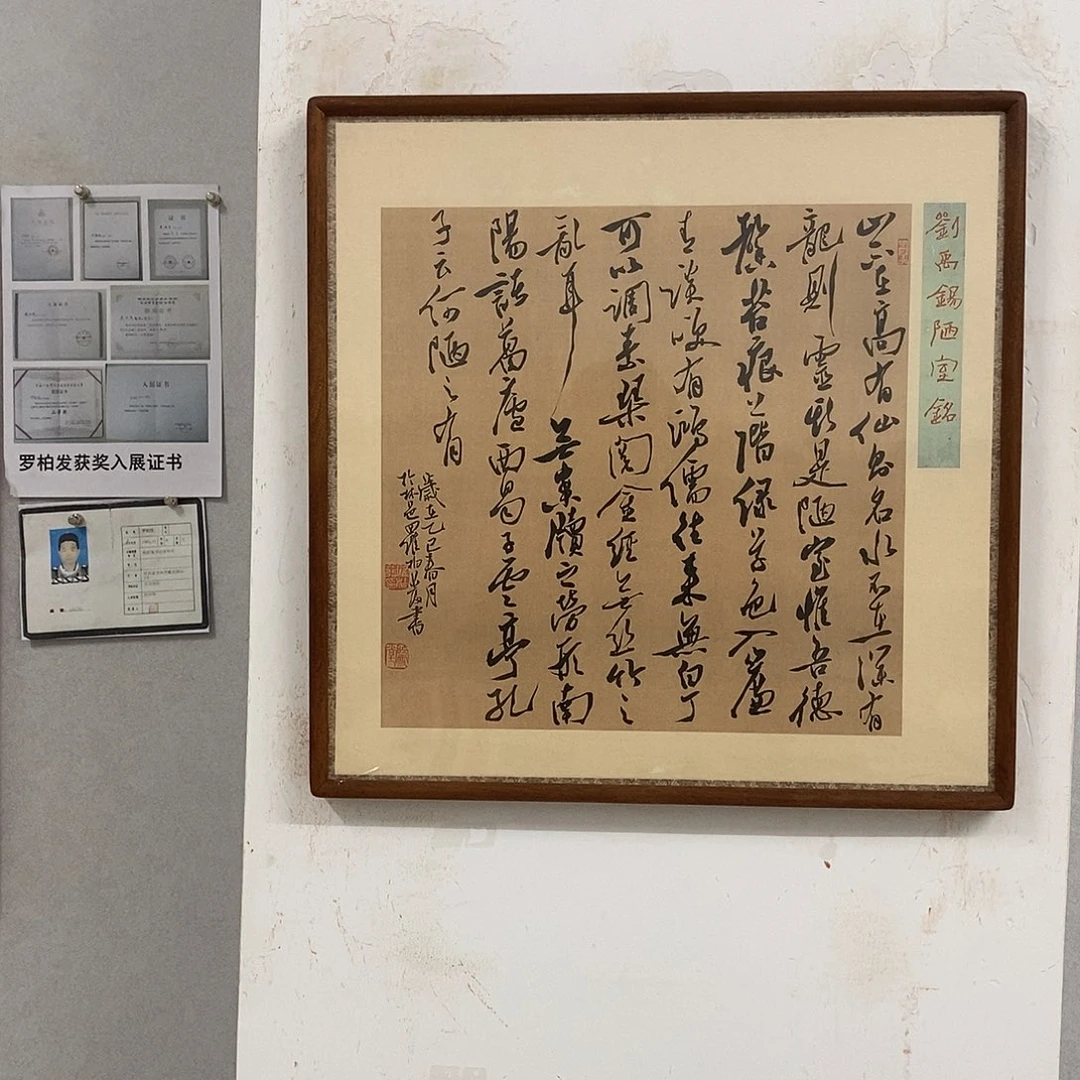 劉禹錫陋室銘
山不在高有仙則名水不在深有
龍則靈斯是陋室惟吾德
馨苔痕上階綠草色入簾
青談笑有鴻儒往來無白丁
可以調素琴閱金經無絲竹之
亂耳無案牘之勞形南
陽諸葛廬西蜀子雲亭孔
子云何陋之有
歲在乙巳春月
於林邑羅柏發書
入展证书
罗柏发获奖入展证书